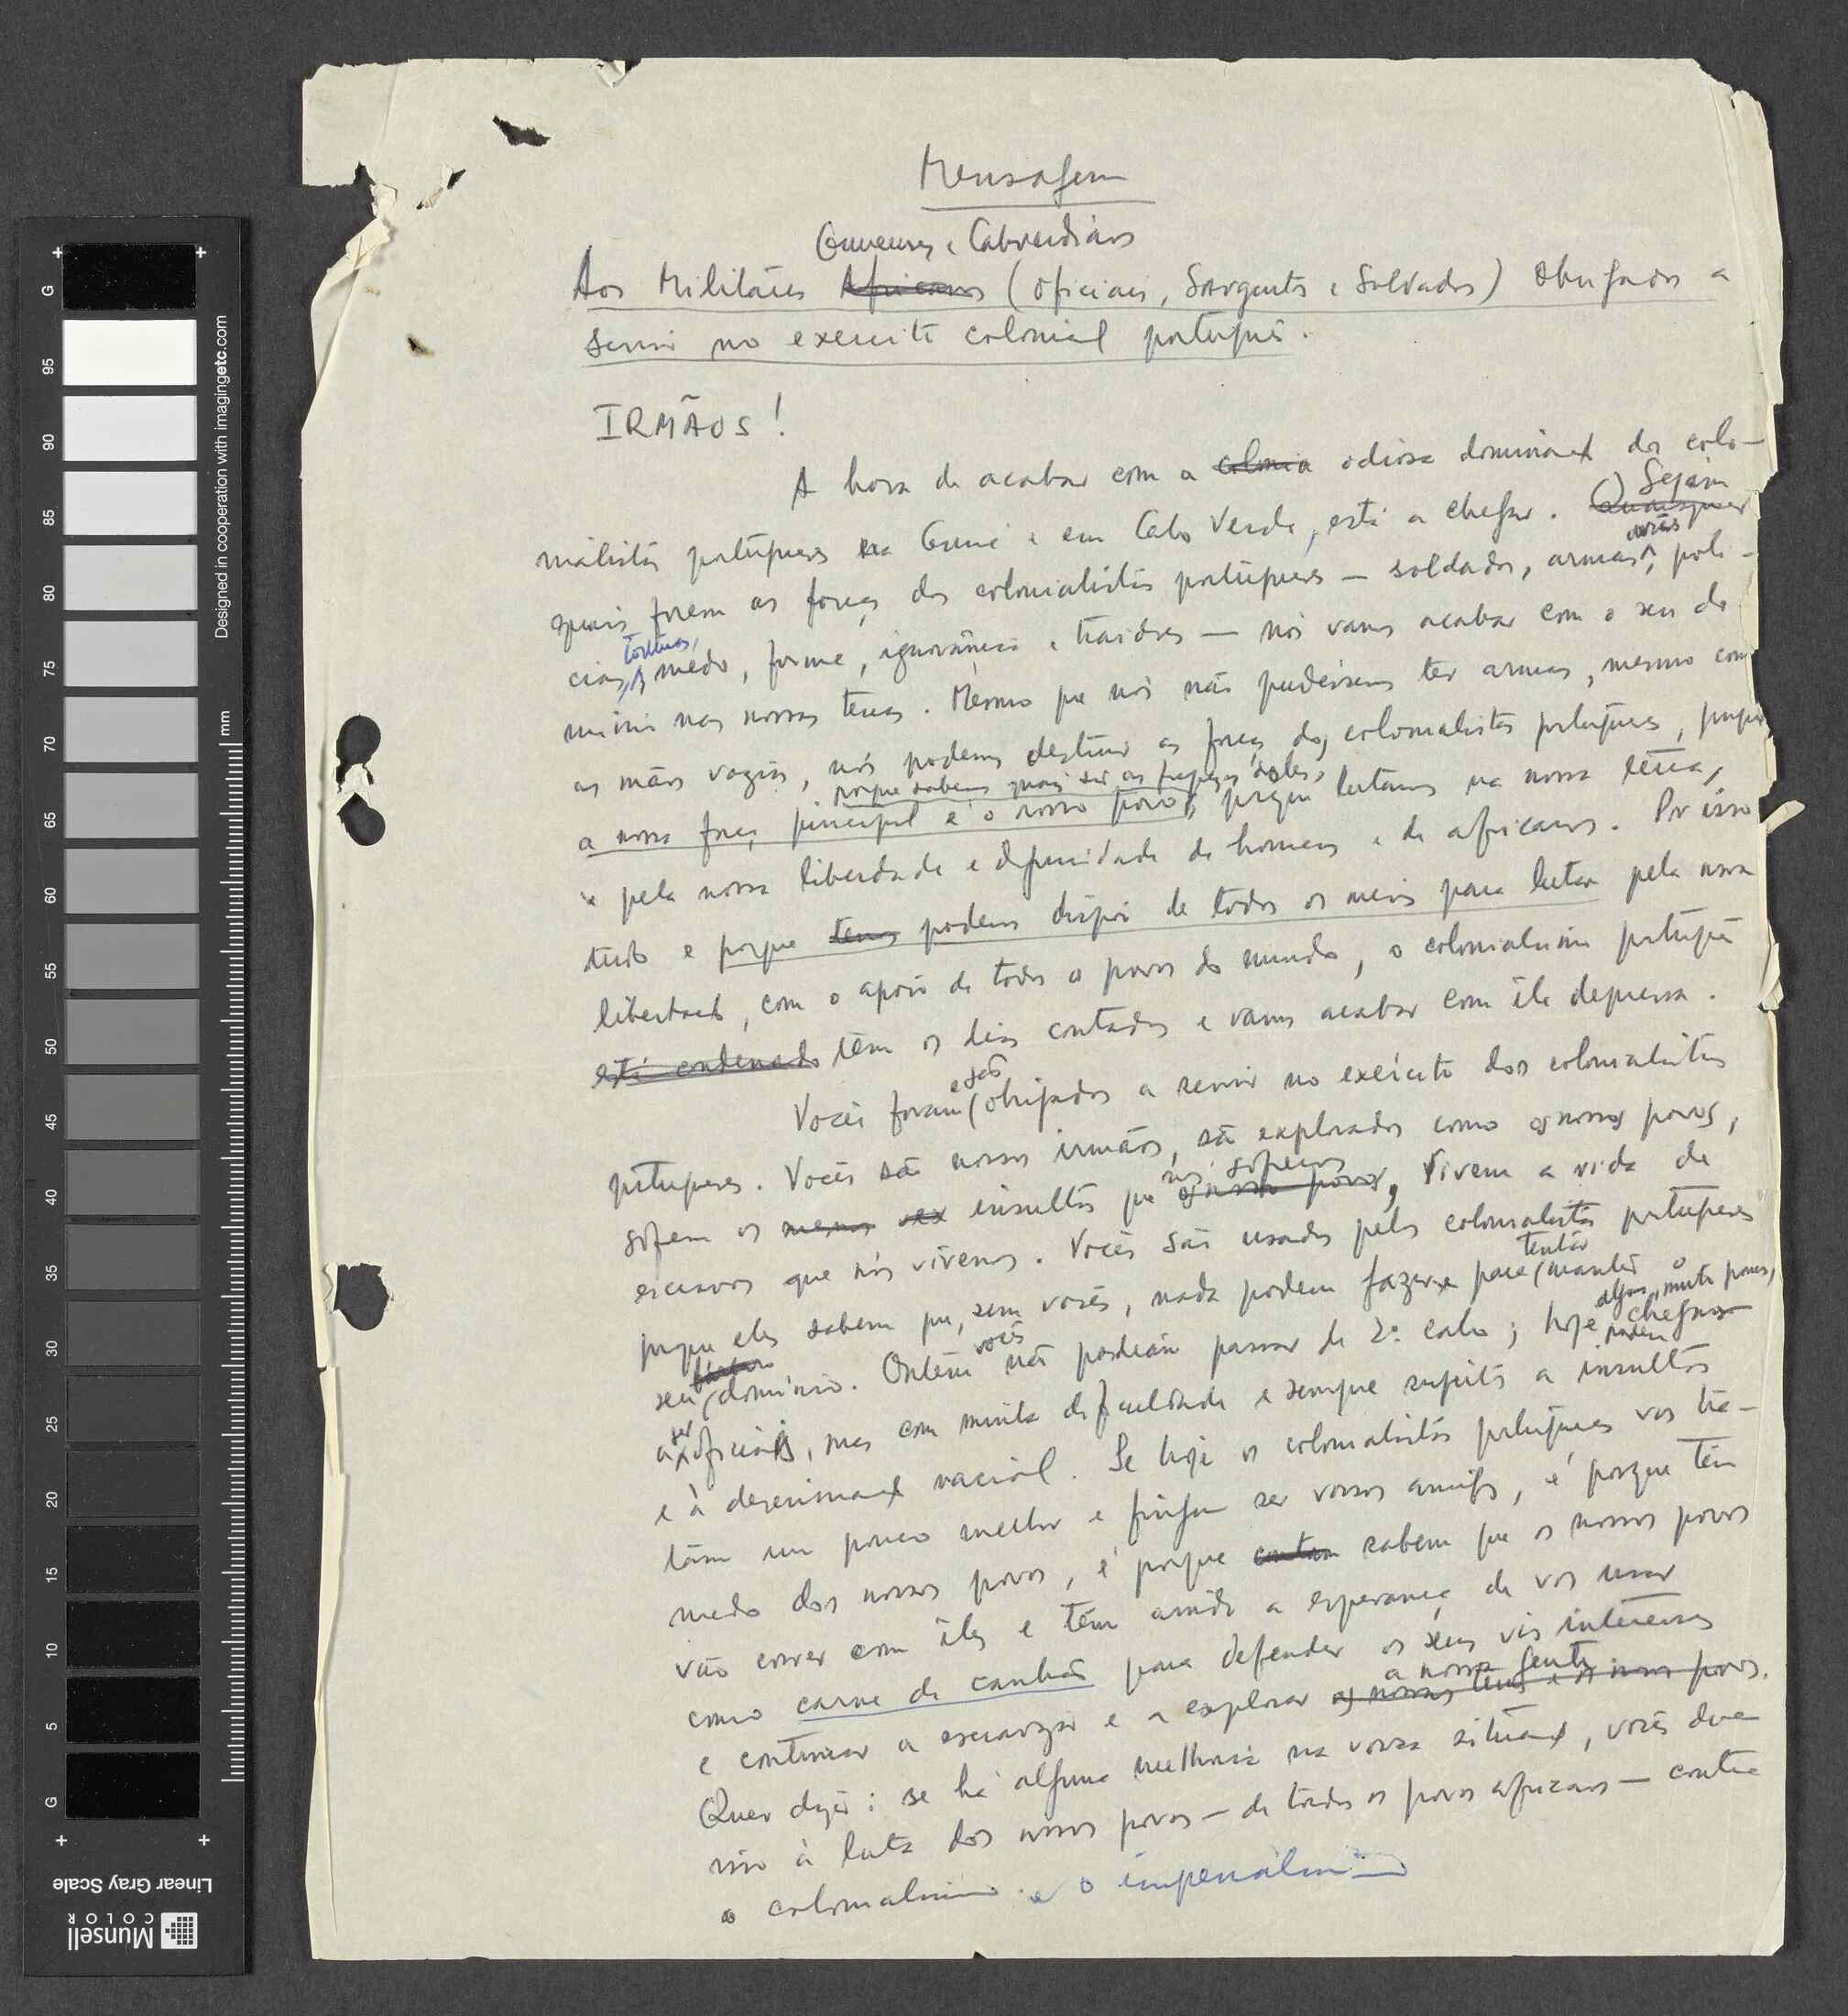 Mensagem
Guineenses e Caboverdianos
Aos Militares Africanos (oficiais, sargentos e soldados) obrigados a
servir no exercito colonial português.
IRMÃOS!
A hora de acabar com a colonia odiosa dominação dos colo-
nialistas portugueses na Guiné e em Cabo Verde, está a chegar. Quaisquer Sejam
quais forem as forças dos colonialistas portugueses — soldados, armas, aviões, poli-
cias, torturas, medo, fome, ignorância e traidores — nós vamos acabar com o seu do-
mínio nas nossas terras. Mesmo que nós não pudéssemos ter armas, mesmo com
as mãos vazias, nós podemos destruir as forças dos colonialistas portugueses, porque
porque sabemos quais são as fraquezas deles,
a nossa força principal é o nosso povo, porque lutamos na nossa terra,
e pela nossa liberdade e dignidade de homens e de africanos. Por isso
tudo e porque temos podemos dispôr de todos os meios para lutar pela nossa
libertação, com o apoio de todos os povos do mundo, o colonialismo português
está condenado têm os dias contados e vamos acabar com êle depressa.
Vocês foram e são obrigados a servir no exército dos colonialistas
portugueses. Vocês são nossos irmãos, são explorados como os nossos povos,
sofrem os mesmos insultos que os nossos povos, nós sofremos Vivem a vida de
escravos que nós vivemos. Vocês são usados pelos colonialistas portugueses
porque eles sabem que, sem vocês, nada podem fazer para tentar manter o
seu domínio. Ontem vocês não podiam passar de 2º. cabo; hoje alguns, muito poucos, podem chegar
a ser oficiais, mas com muita dificuldade e sempre sujeitos a insultos
e à descriminação racial. Se hoje os colonialistas portugueses vos tra-
tam um pouco melhor e fingem ser vossos amigos, é porque têm
medo dos nossos povos, é porque contam sabem que os nossos povos
vão correr com êles e têm ainda a esperança de vos usar
como carne de canhão para defender os seus vis interesses
e continuar a escravizar e a explorar as nossas terras e os nossos povos. a nossa gente.
Quer dizer: se há alguma melhoria na vossa situação, vocês devem
isso à luta dos nossos povos — de todos os povos africanos — contra
o colonialismo. e o imperialismo
G 95 90 85 80 75 70 65 60 55 50 45 40 35 30 25 20 15 10 5 G
mm
Designed in cooperation with imagingetc.com
Linear Gray Scale
Munsell
COLOR